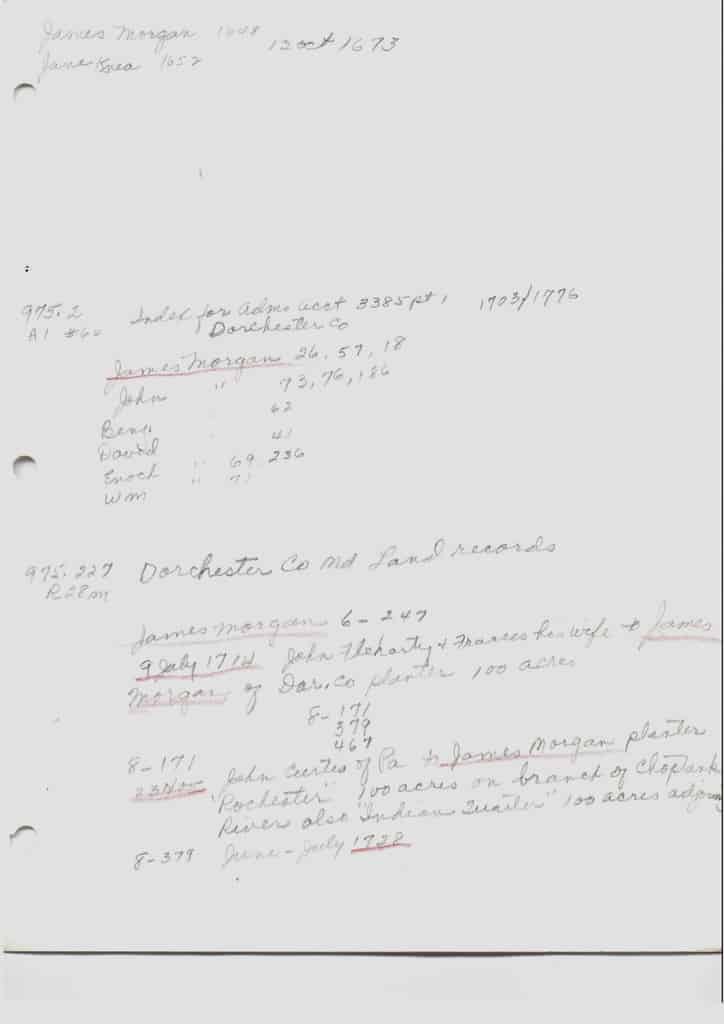 James Morgan 1648 12 oct 1673
Jane Knea 1652
975.2 Index for Adms acct 3385 pt 1 1703/1776
A1 #60 Dorchester Co
James Morgan 26, 57, 18
John " 73, 76, 186
Benj " 62
David " 41
Enoch " 69, 236
Wm " 71
975.227 Dorchester Co Md Land records
R28m
James Morgan 6-247
9 July 1714 John Fleharty & Frances his wife to James
Morgan of Dor. Co planter 100 acres
8-171
379
467
8-171 John Curtes of Pa to James Morgan planter
23 Nov "Rochester" 100 acres on branch of Choptank
River also "Indian Quarter" 100 acres adjoining
8-379 June-July 1728